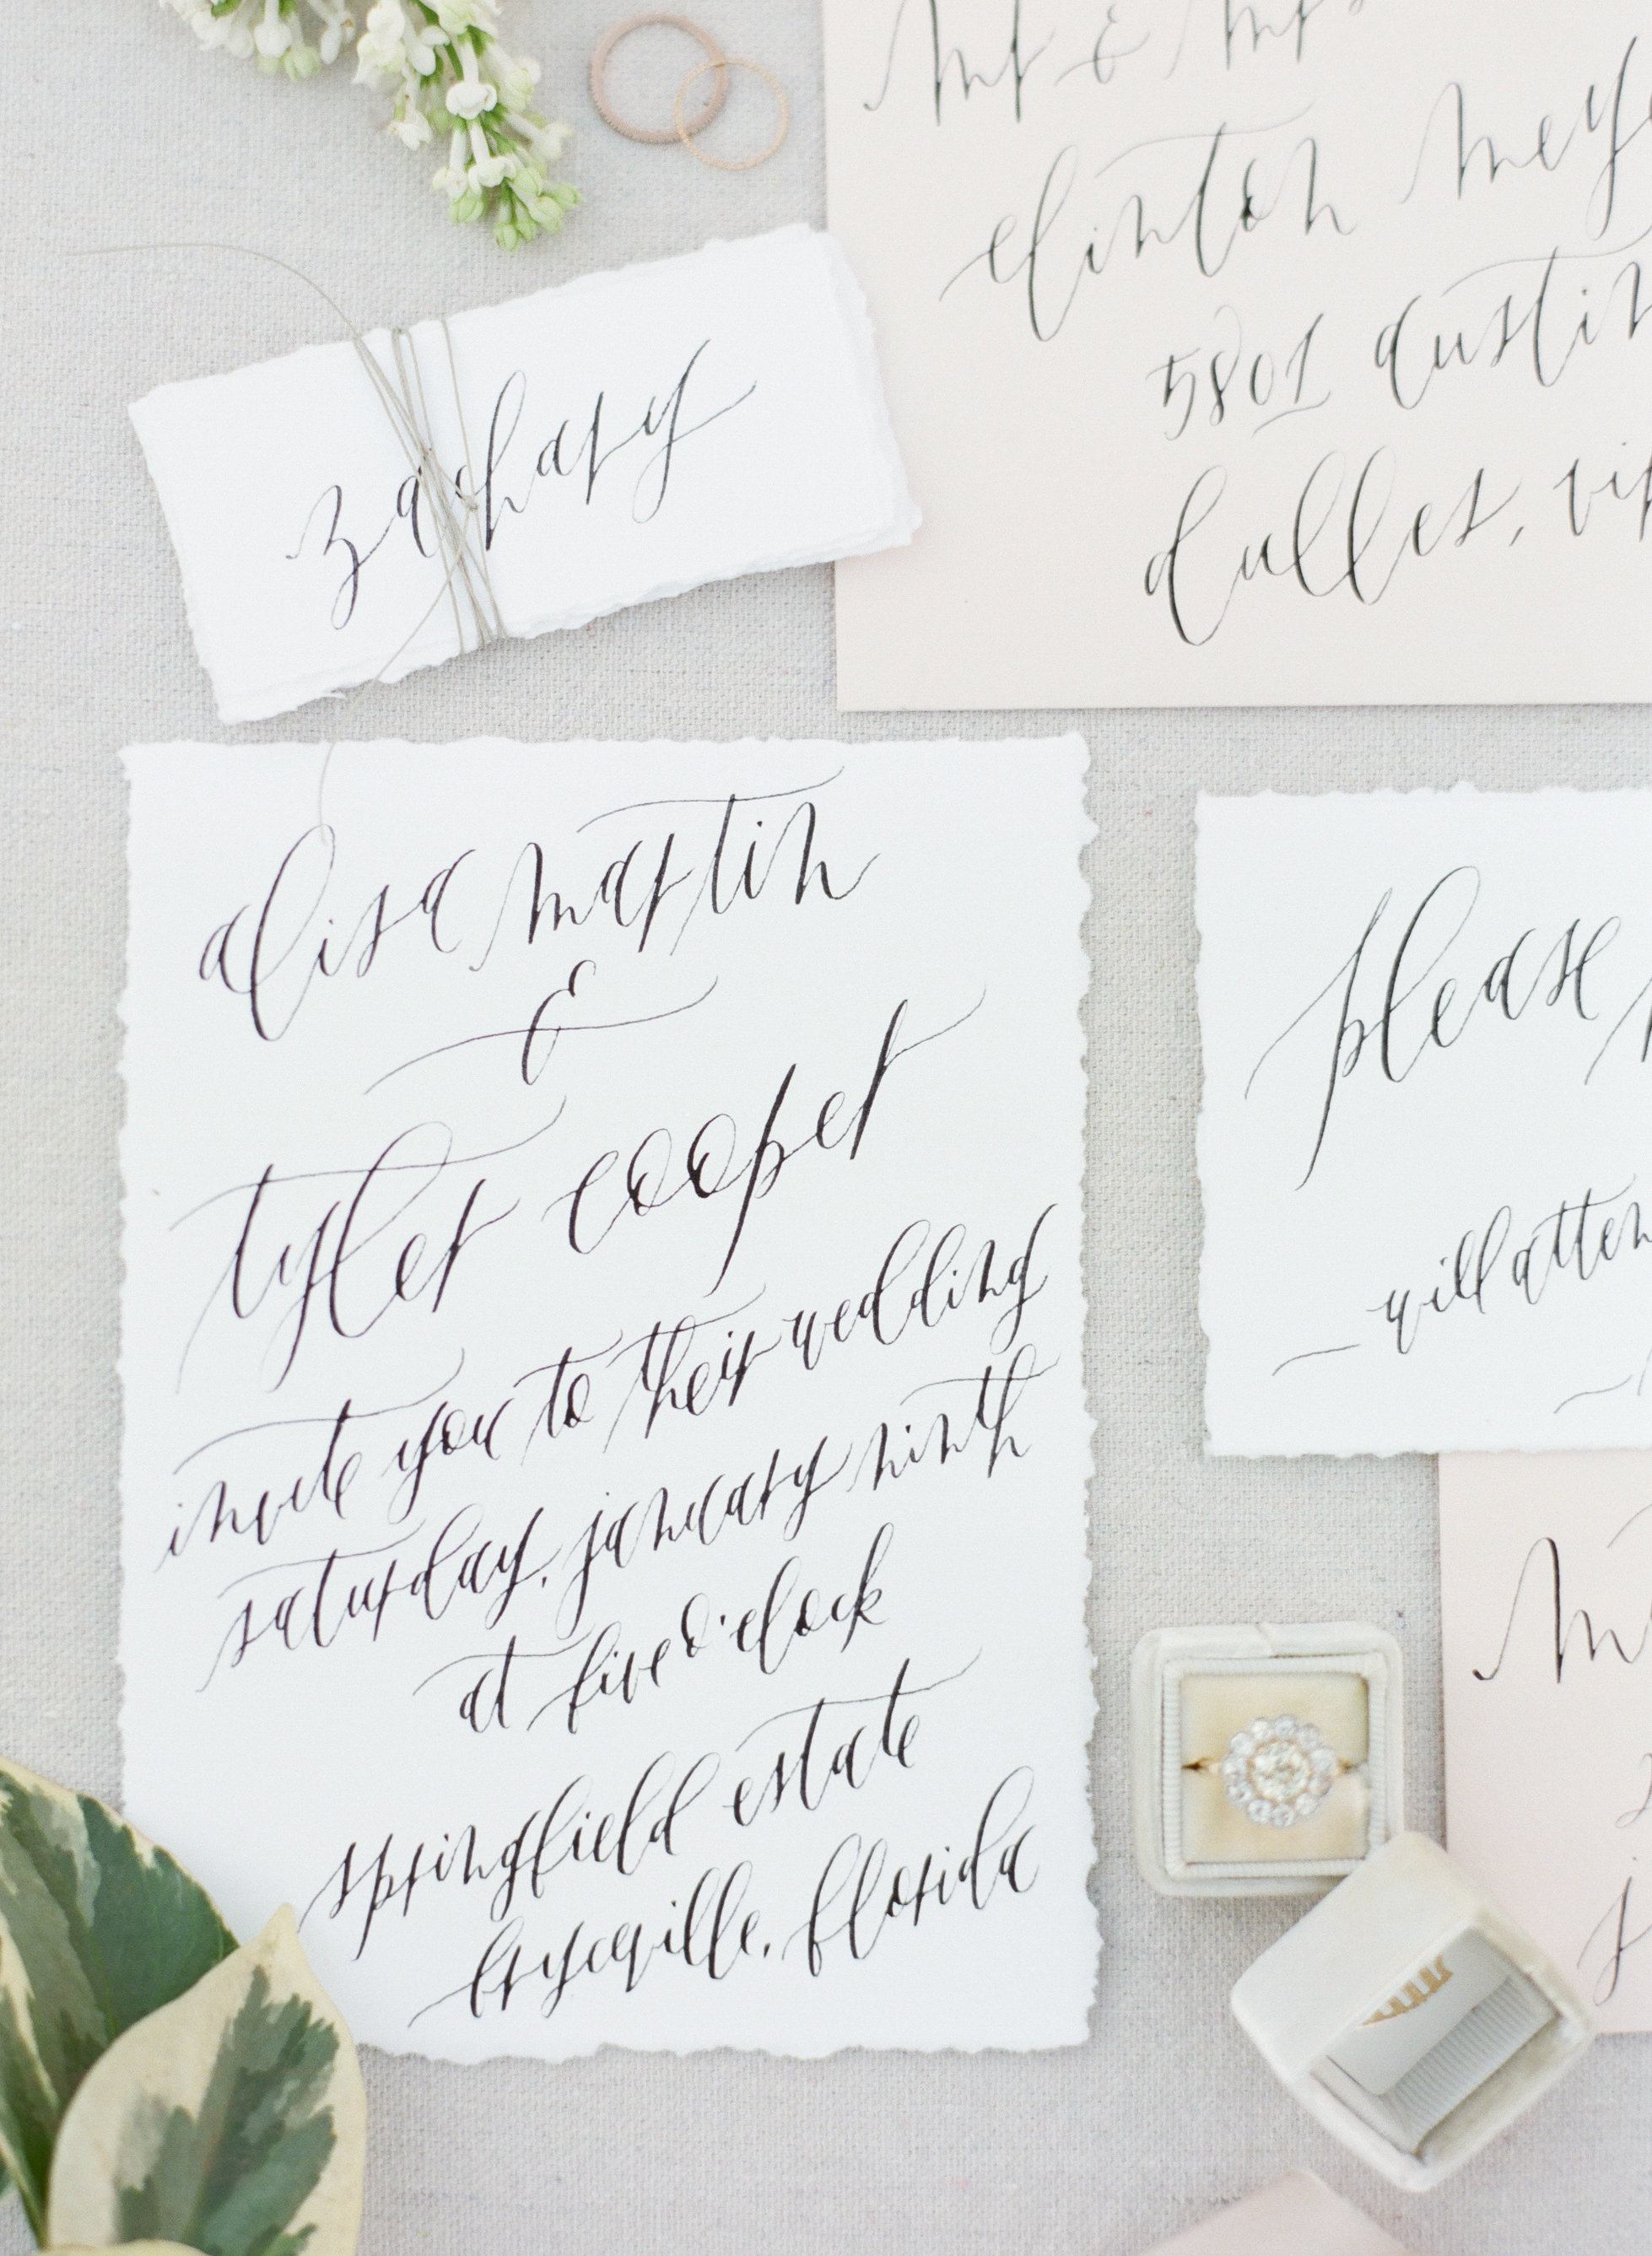 mr & mrs
clinton
5801 austin
dulles,
zachary
alisa martin
&
tyler cooper
invite you to their wedding
saturday, january ninth
at five o'clock
springfield estate
bryceville, florida
please
will atten
m